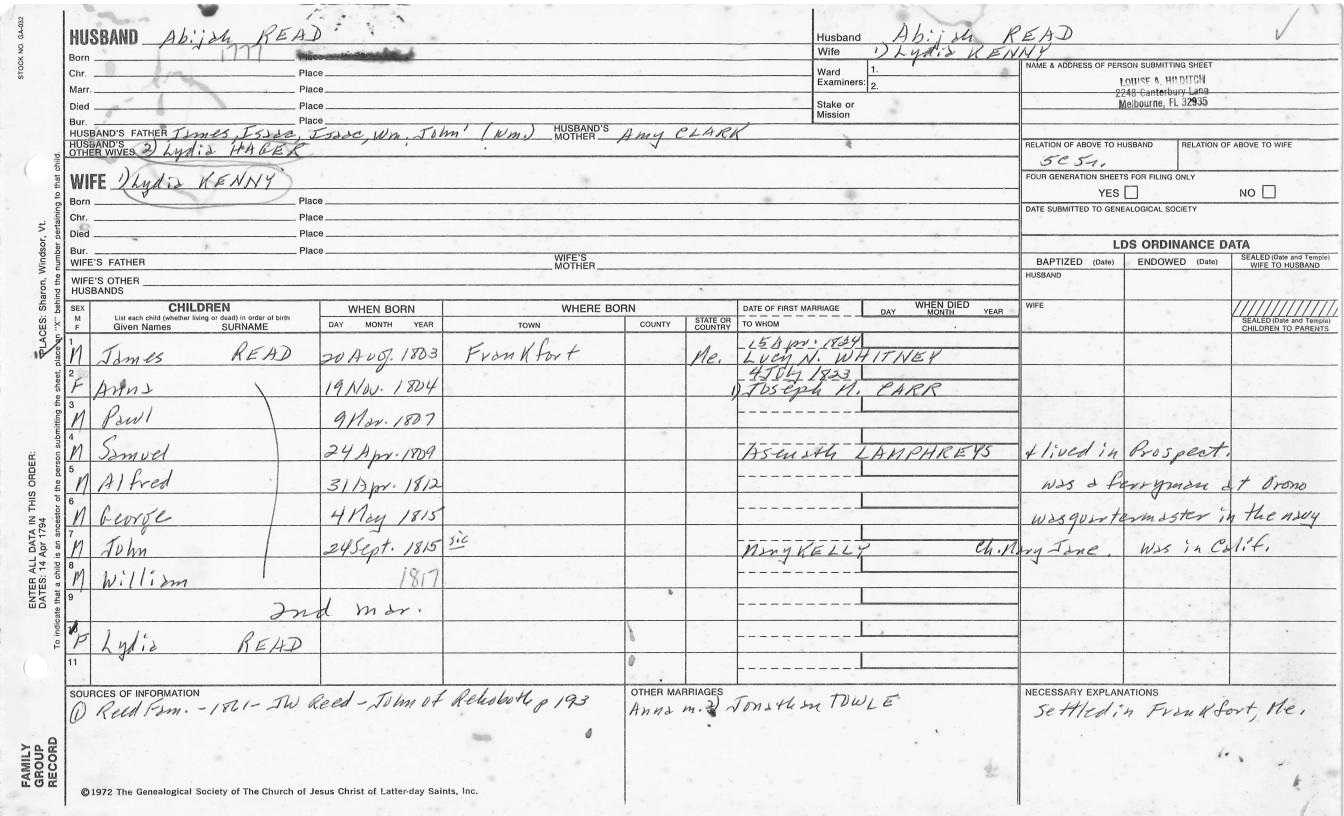 STOCK NO. GA-032
HUSBAND Abijah READ
Born 1777 Place
Chr. Place
Marr. Place
Died Place
Bur. Place
HUSBAND'S FATHER James, Isaac, Isaac, Wm. John' (Wm.) HUSBAND'S MOTHER Amy CLARK
HUSBAND'S OTHER WIVES 2) Lydia HAGER
WIFE 1) Lydia KENNY
Born Place
Chr. Place
Died Place
Bur. Place
WIFE'S FATHER WIFE'S MOTHER
WIFE'S OTHER HUSBANDS
Husband Abijah READ
Wife 1) Lydia KENNY
Ward Examiners: 1.
2.
Stake or Mission
NAME & ADDRESS OF PERSON SUBMITTING SHEET
LOUISE A. HILDITCH
2248 Canterbury Lane
Melbourne, FL 32935
RELATION OF ABOVE TO HUSBAND RELATION OF ABOVE TO WIFE
FOUR GENERATION SHEETS FOR FILING ONLY
YES NO
DATE SUBMITTED TO GENEALOGICAL SOCIETY
LDS ORDINANCE DATA
BAPTIZED (Date) ENDOWED (Date) SEALED (Date and Temple) WIFE TO HUSBAND
HUSBAND
WIFE
SEALED (Date and Temple) CHILDREN TO PARENTS
SEX M F CHILDREN WHEN BORN WHERE BORN DATE OF FIRST MARRIAGE WHEN DIED
List each child (whether living or dead) in order of birth
Given Names SURNAME DAY MONTH YEAR TOWN COUNTY STATE OR COUNTRY TO WHOM DAY MONTH YEAR
15 Apr. 1824
1 M James READ 20 Aug. 1803 Frankfort Me. Lucy N. WHITNEY
4 July 1823
2 F Anna 19 Nov. 1804 1) Joseph M. CARR
3 M Paul 9 Mar. 1807
4 M Samuel 24 Apr. 1809 Asenath LAMPHREYS & lived in Prospect.
5 M Alfred 31 Apr. 1812 was a ferryman at Orono
6 M George 4 May 1815 was quartermaster in the navy
7 M John 24 Sept. 1815 sic Mary KELLY Ch. Mary Jane. was in Calif.
8 M William 1817
9 2nd mar.
10 F Lydia READ
11
SOURCES OF INFORMATION
① Reed Fam. - 1861 - JW Reed - John of Rehoboth p 193
OTHER MARRIAGES
Anna m. 2) Jonathan TOWLE
NECESSARY EXPLANATIONS
Settled in Frankfort, Me.
©1972 The Genealogical Society of The Church of Jesus Christ of Latter-day Saints, Inc.
FAMILY GROUP RECORD
ENTER ALL DATA IN THIS ORDER:
DATES: 14 Apr 1794
PLACES: Sharon, Windsor, Vt.
To indicate that a child is an ancestor of the person submitting the sheet, place an "X" behind the number pertaining to that child.